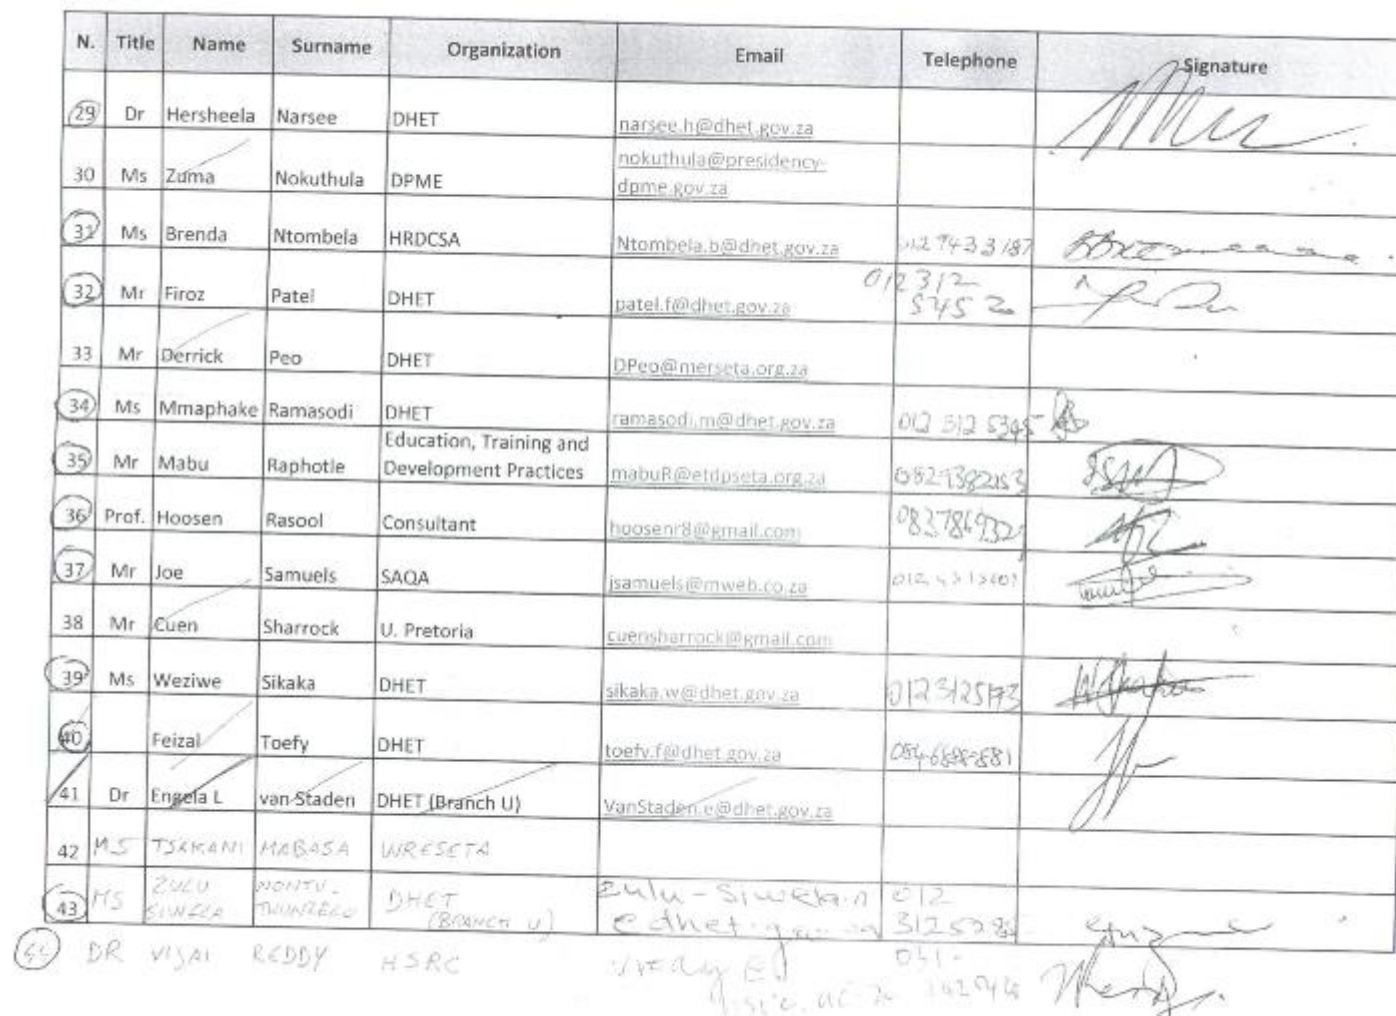 N. Title Name Surname Organization Email Telephone Signature
29 Dr Hersheela Narsee DHET narsee.h@dhet.gov.za
30 Ms Zuma Nokuthula DPME nokuthula@presidency-
dpme.gov.za
31 Ms Brenda Ntombela HRDCSA Ntombela.b@dhet.gov.za 012 9433187
32 Mr Firoz Patel DHET patel.f@dhet.gov.za 012 312
33 Mr Derrick Peo DHET DPeo@merseta.org.za
34 Ms Mmaphake Ramasodi DHET ramasodi.m@dhet.gov.za 012 312 5345
Education, Training and
35 Mr Mabu Raphotle Development Practices mabuR@etdpseta.org.za
36 Prof. Hoosen Rasool Consultant hoosenr8@gmail.com
37 Mr Joe Samuels SAQA jsamuels@mweb.co.za
38 Mr Cuen Sharrock U. Pretoria cuensharrock@gmail.com
39 Ms Weziwe Sikaka DHET sikaka.w@dhet.gov.za 0123125173
40 Feizal Toefy DHET toefy.f@dhet.gov.za
41 Dr Engela L van Staden DHET (Branch U) VanStaden.e@dhet.gov.za
42 MS TSAKANI MABASA WRESETA
43 MS ZULU DHET 012
(BRANCH U)
DR VIJAI REDDY HSRC